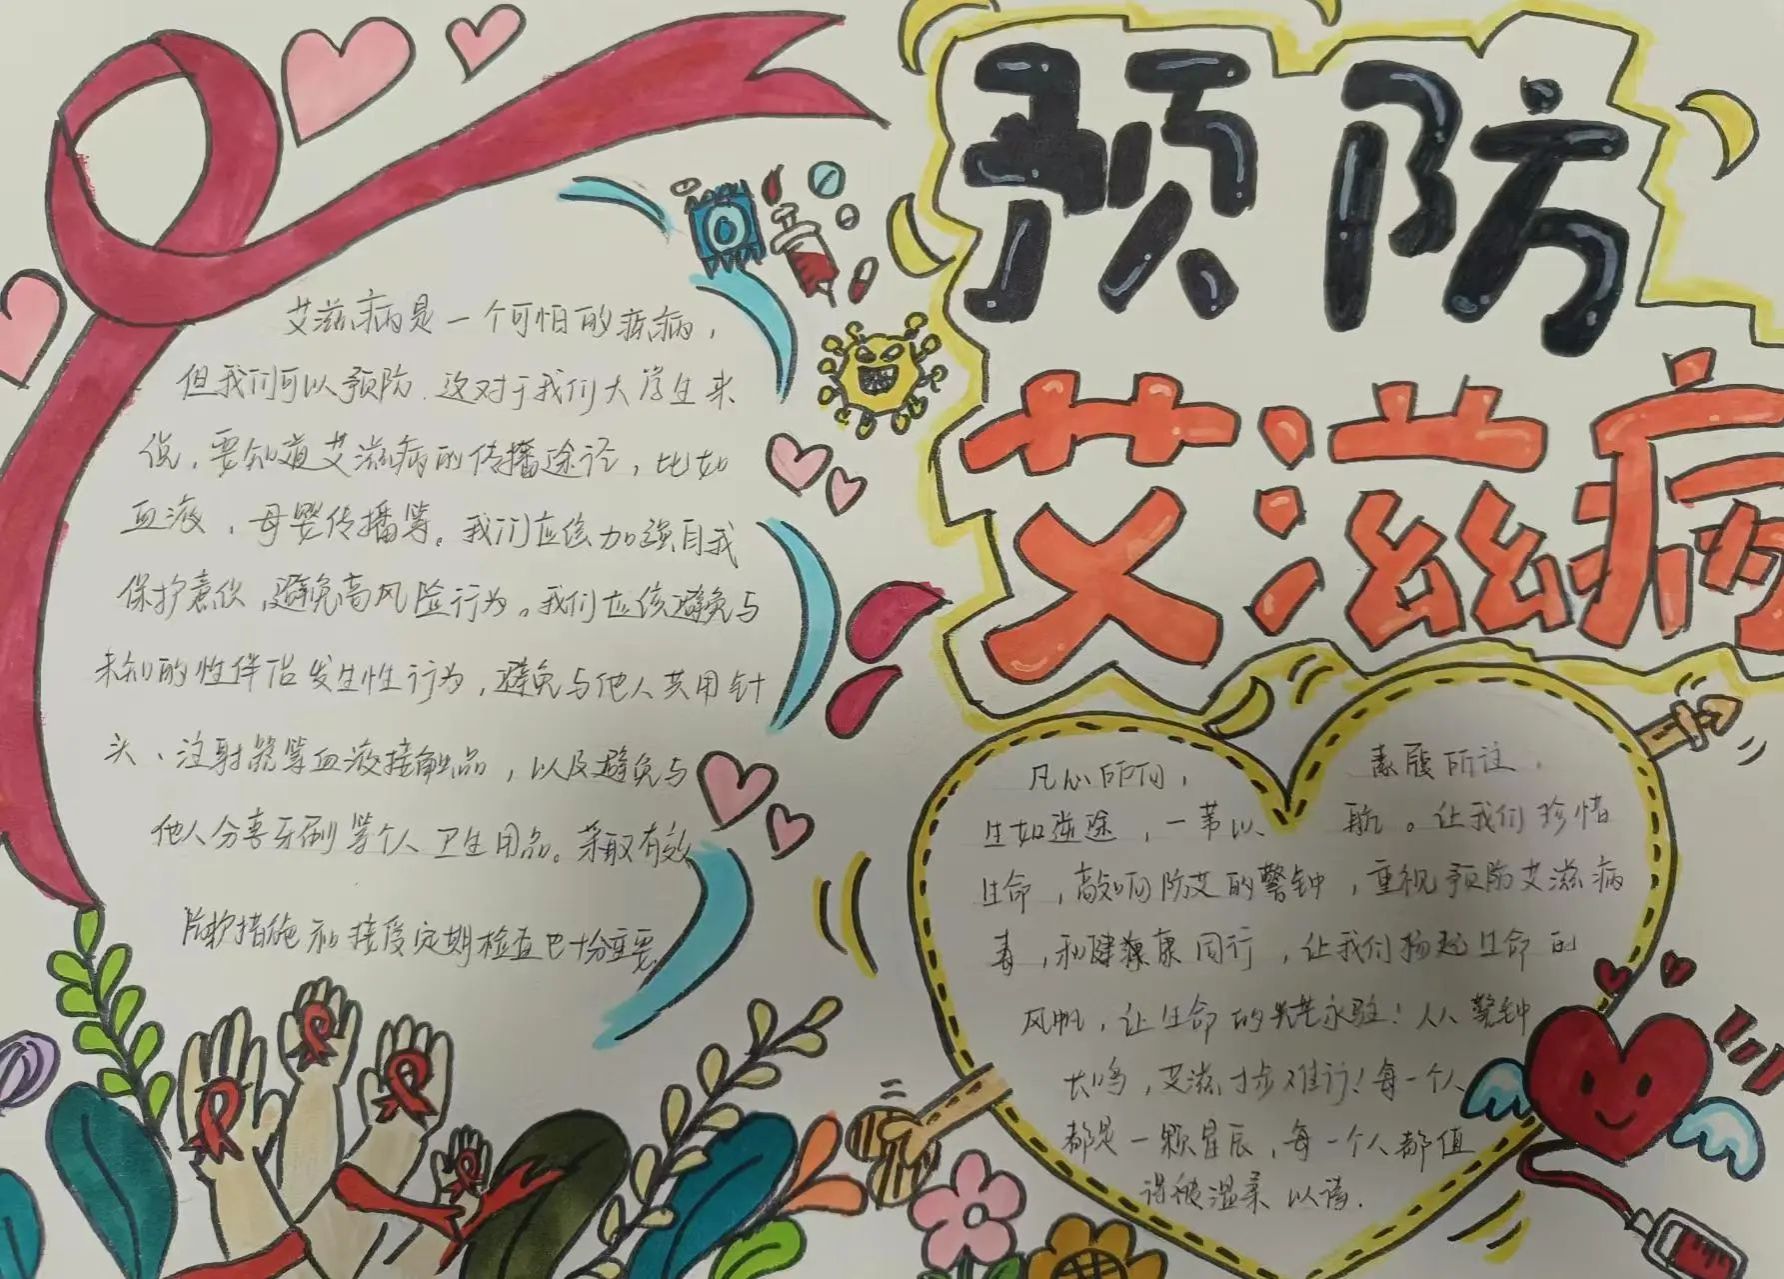 预防
艾滋病
艾滋病是一个可怕的疾病，
但我们可以预防．这对于我们大学生来
说，要知道艾滋病的传播途径，比如
血液，母婴传播等。我们应该加强自我
保护意识，避免高风险行为。我们应该避免与
未知的性伴侣发生性行为，避免与他人共用针
头、注射器等血液接触品，以及避免与
他人分享牙刷等个人卫生用品。采取有效
防护措施和接受定期检查也十分重要。
凡心所向，素履所往，
生如逆途，一苇以航。让我们珍惜
生命，敲响防艾的警钟，重视预防艾滋病
毒，和健康同行，让我们扬起生命的
风帆，让生命的光芒永驻！人人警钟
长鸣，艾滋寸步难行！每一个人
都是一颗星辰，每一个人都值
得被温柔以待．